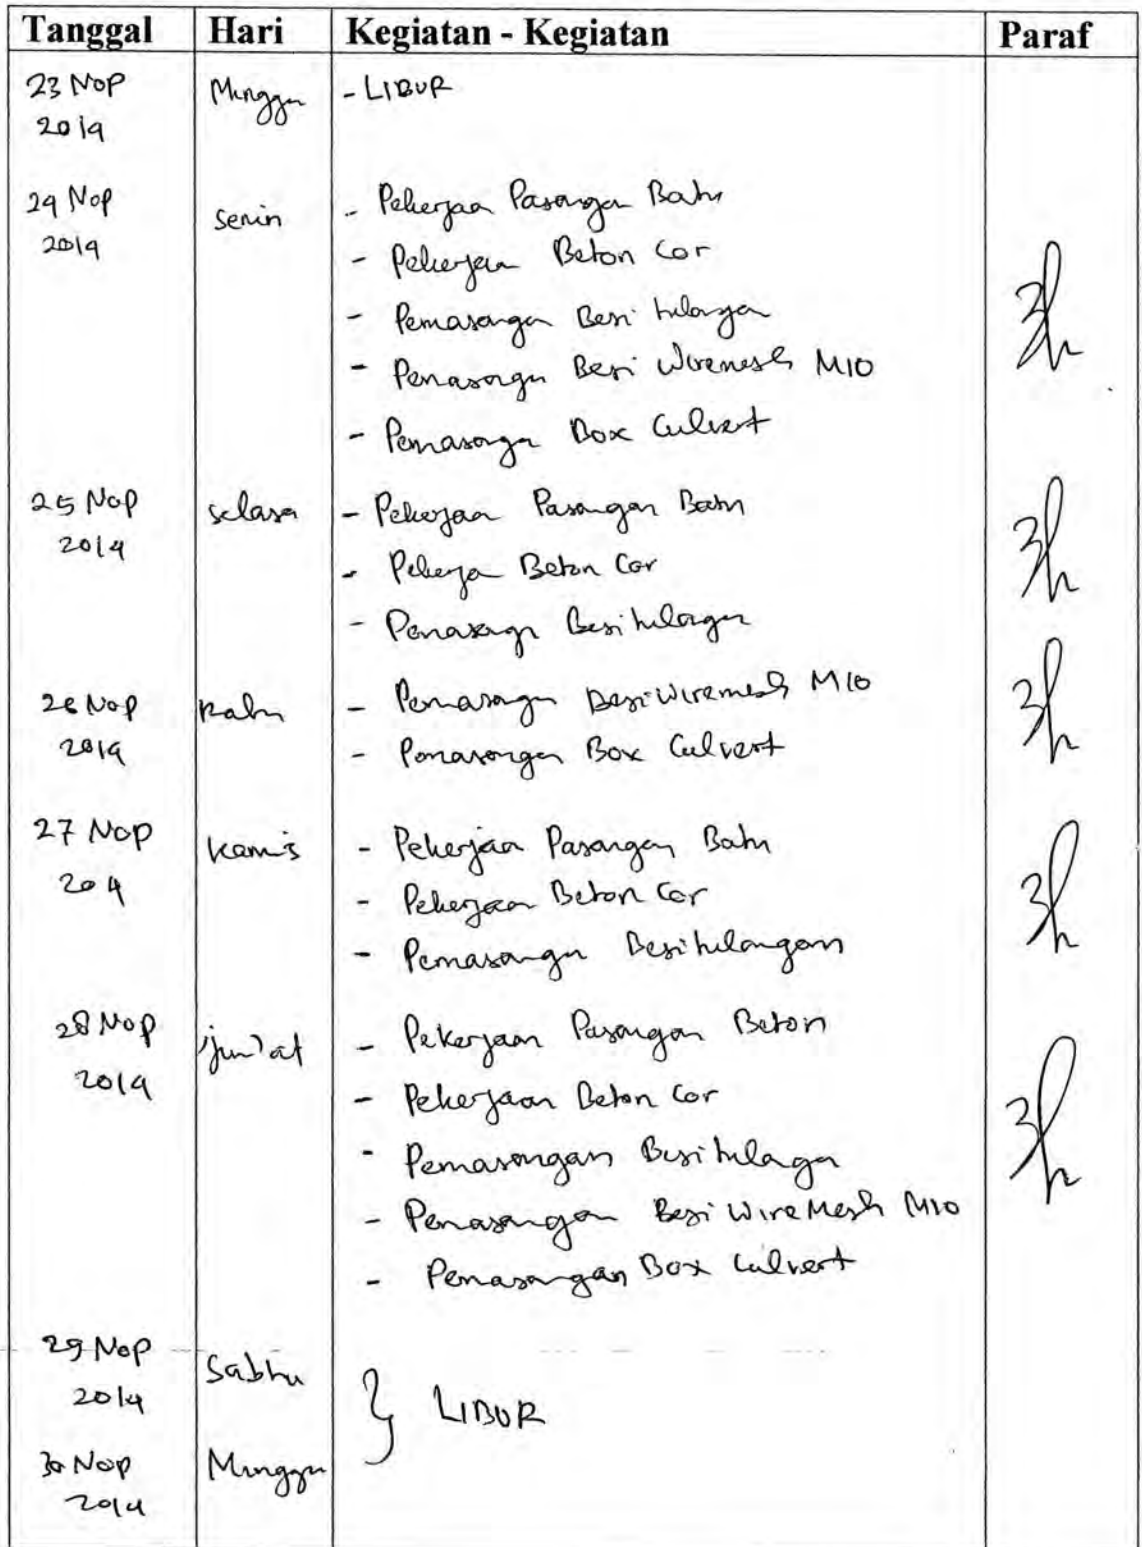 Tanggal Hari Kegiatan - Kegiatan Paraf
23 Nop Minggu - LIBUR
2014
24 Nop senin - Pekerjaa Pasanga Batu
2014
- Pekerjaa Beton Cor
- Pemasanga Besi tulanga
- Pemasanga Besi Wiremesh M10
- Pemasanga Box Culvert
25 Nop selasa - Pekerjaa Pasangan Batu
2014
- Pekerja Beton Cor
- Pemasanga Besi tulangan
26 Nop Rabu - Pemasanga Besi Wiremesh M10
2014 - Pemasangan Box Culvert
27 Nop kamis - Pekerjaa Pasangan Batu
2014 - Pekerjaan Beton Cor
- Pemasanga Besi tulangan
28 Nop jum'at - Pekerjaan Pasangan Beton
2014
- Pekerjaan Beton Cor
- Pemasangan Besi tulaga
- Pemasangan Besi Wire Mesh M10
- Pemasangan Box Culvert
29 Nop Sabtu
2014 } LIBUR
30 Nop Minggu
2014